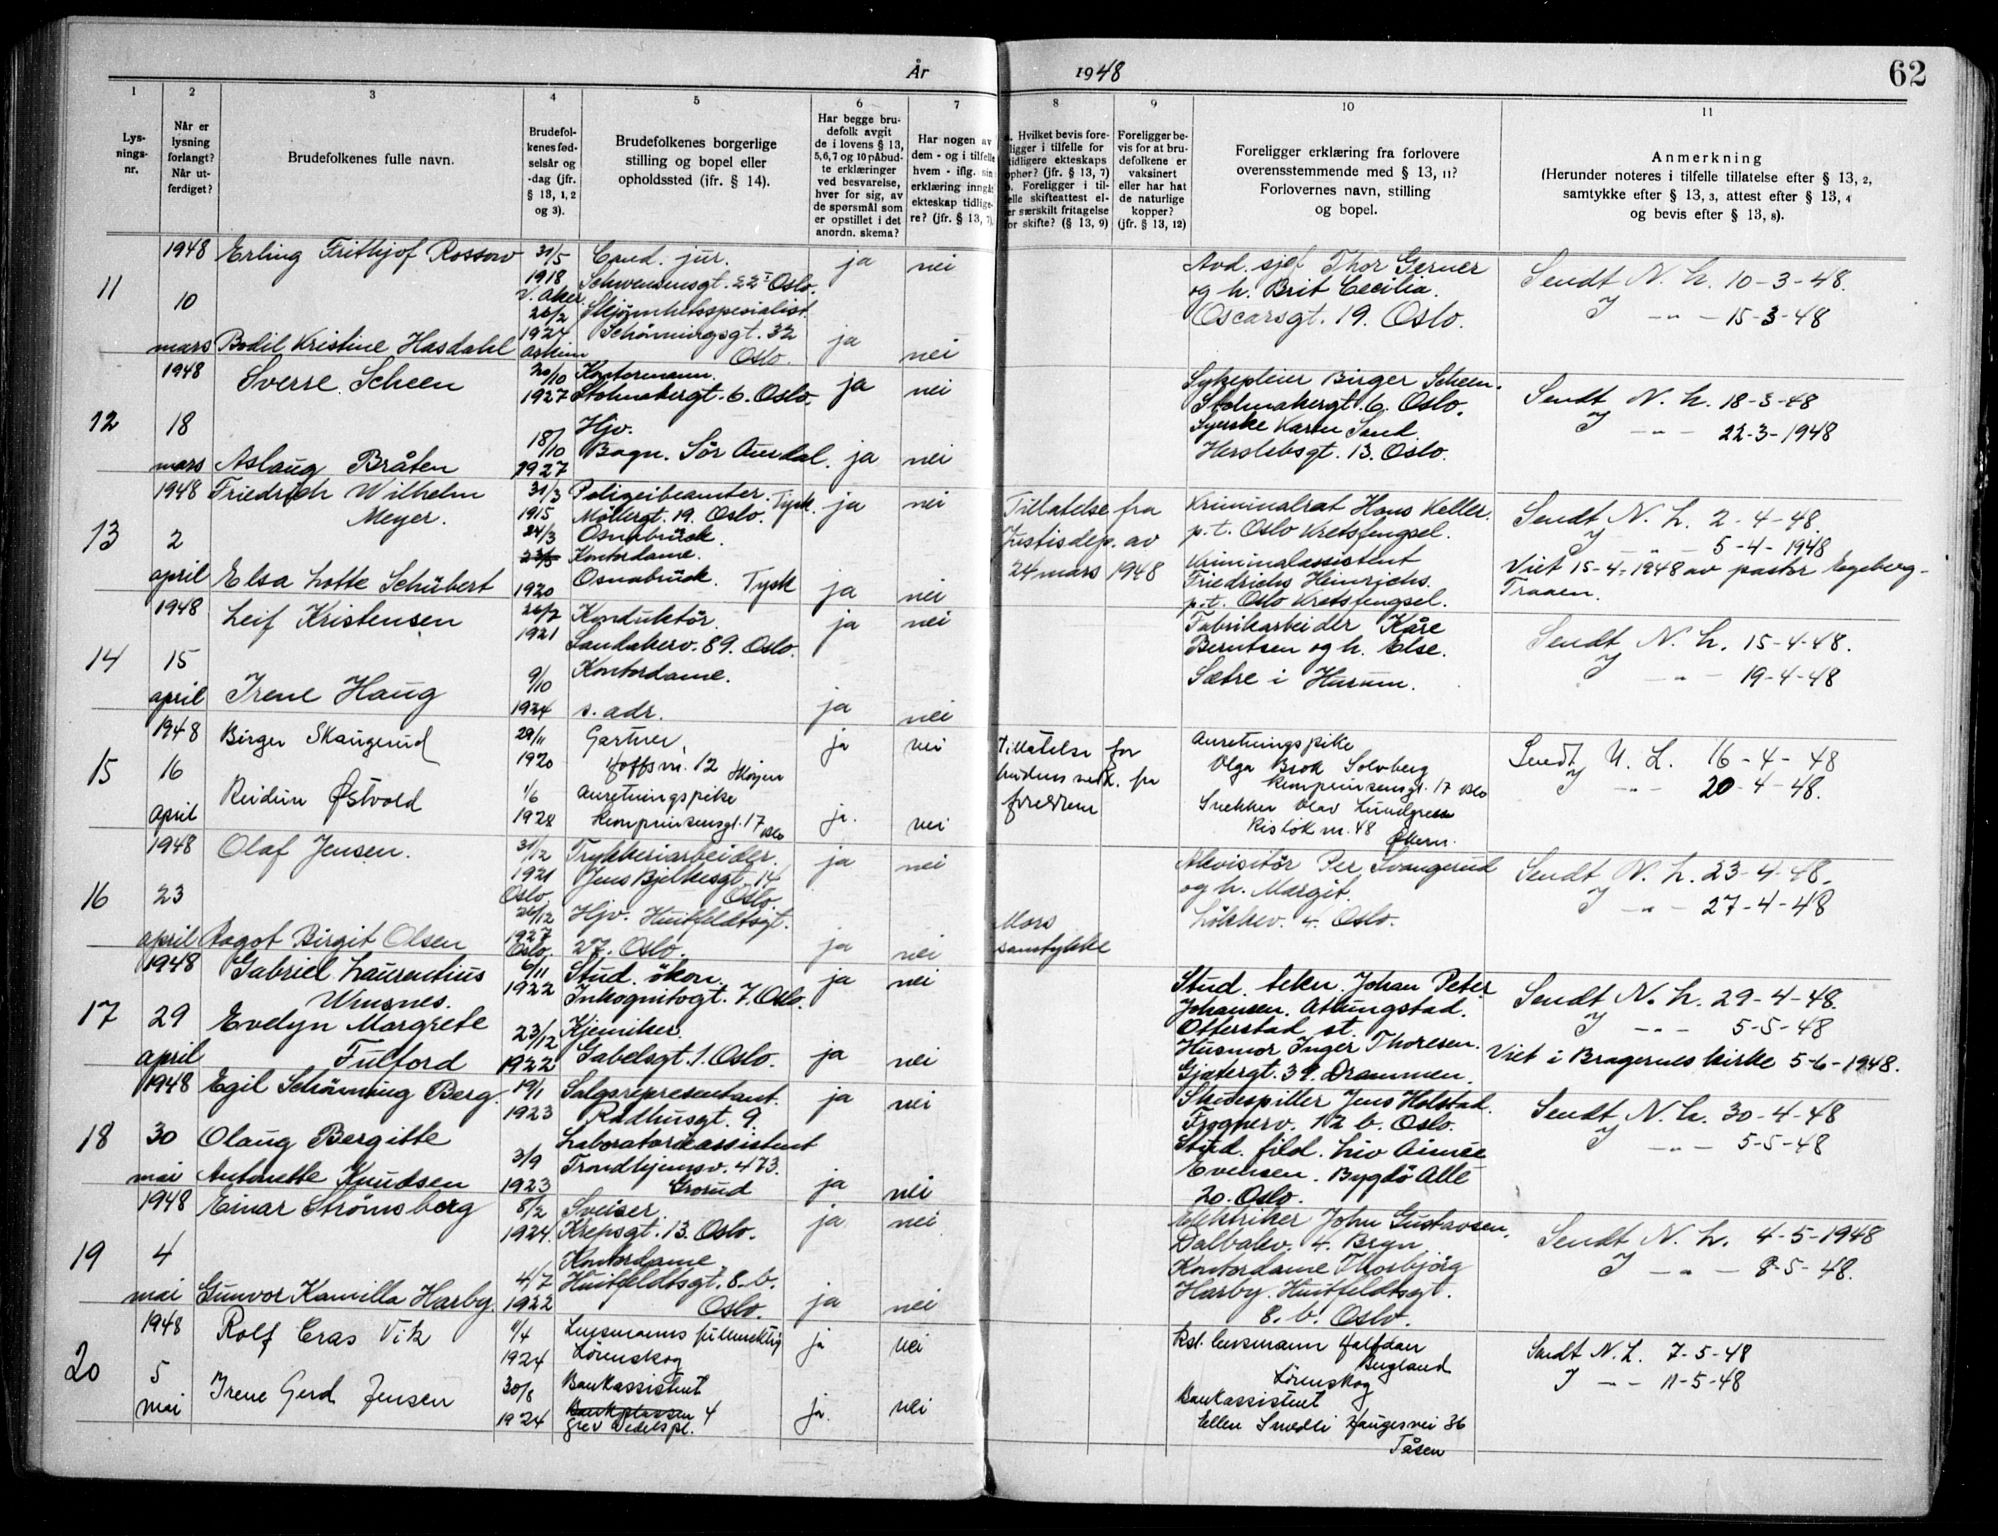 År 1948
62
1
2
3
4
5
6
7
8
9
10
11
Lys-
nings-
nr.
Når er
lysning
forlangt?
Når ut-
ferdiget?
Brudefolkenes fulle navn.
Brudefol-
kenes fød-
selsår og
-dag (jfr.
§ 13, 1, 2
og 3).
Brudefolkenes borgerlige
stilling og bopel eller
opholdssted (ifr. § 14).
Har begge bru-
defolk avgit
de i lovens § 13,
5,6,7 og 10 påbud-
te erklæringer
ved besvarelse,
hver for sig, av
de spørsmål som
er opstillet i det
anordn. skema?
Har nogen av
dem - og i tilfelle
hvem - iflg. sin
erklæring inngåt
ekteskap tidlige-
re? (jfr. § 13, 7).
a. Hvilket bevis fore-
ligger i tilfelle for
tidligere ekteskaps
ophør? (jfr. § 13, 7)
b. Foreligger i til-
felle skifteattest el-
er særskilt fritagelse
for skifte? (§ 13, 9)
Foreligger be-
vis for at bru-
defolkene er
vaksinert
eller har hat
de naturlige
kopper?
(jfr. § 13, 12)
Foreligger erklæring fra forlovere
overensstemmende med § 13, 11?
Forlovernes navn, stilling
og bopel.
Anmerkning
(Herunder noteres i tilfelle tillatelse efter § 13, 2,
samtykke efter § 13, 3, attest efter § 13, 4
og bevis efter § 13, 8).
11
1948
10
mars
Erling Frithjof Rossow
Bodil Kristine Hasdahl
31/5
1918
V. Aker
26/2
1924
Askim
Cand. jur.
Schwensensgt. 22 I Oslo.
Skjønnhetsspesialist
Schönningsgt. 32
Oslo.
ja nei
ja nei
Avd. sjef Thor Gerner
og h. Brit Cecilia.
Oscarsgt. 19. Oslo.
Sendt N. L. 10-3-48.
J — " — 15-3-48
12
1948
18
mars
Sverre Scheen
Aslaug Bråten
20/10
1927
18/10
1927
Kontormann.
Stolmakergt. 6. Oslo.
Hjv.
Bagn. Sör Aurdal.
ja nei
ja nei
Sykepleier Birger Scheen.
Stolmakergt. 6. Oslo.
Syerske Karen Sand.
Herslebsgt. 13. Oslo.
Sendt N. L. 18-3-48
J — " — 22-3-1948
13
1948
2
april
Friedrich Wilhelm
Meyer.
Elsa Lotte Schübert
31/3
1915
24/3
1920
Polizeibeamter.
Möllergt. 19. Oslo. Tysk.
Osnabrück.
Kontordame.
Osnabrück. Tysk
ja nei
ja nei
Tillatelse fra
Justisdep. av
24 mars 1948
Kriminalrat Hans Keller.
p.t. Oslo Kretsfengsel.
Kriminalassistent
Friedrichs Heinrichs.
p.t. Oslo Kretsfengsel.
Sendt N. L. 2-4-48.
J — " — 5-4-1948
Viet 15-4-1948 av pastor Egeberg-
Traaen.
14
1948
15
april
Leif Kristensen
Irene Haug
26/7
1921
9/10
1924
Konduktör.
Sandakerv. 89. Oslo.
Kontordame.
s. adr.
ja nei
ja nei
Fabrikarbeider Kåre
Berntsen og h. Else.
Sætre i Hurum.
Sendt N. L. 15-4-48.
J — " — 19-4-48
15
1948
16
april
Birger Skaugerud
Reidun Østvold
29/11
1920
1/6
1928
Gartner,
Hoffsvn. 12 Skøyen
Anretningspike
Kronprinsensgt. 17 Oslo
ja nei
ja. nei
Tillatelse for
brudens vedk. fra
foreldrene
Anretningspike
Olga Brok Solvberg
Kronprinsensgt. 17 Oslo
Snekker Olav Lundgren
Risløkvn. 48
Økern.
Sendt N. L. 16-4-48
J — " — 20-4-48.
16
1948
23
april
Olaf Jensen.
Ragot Birgit Olsen
31/12
1921
Oslo.
26/12
1927
Oslo.
Trykkeriarbeider.
Jens Bjelkesgt. 14
Oslo.
Hjv. Huitfeldtsgt.
27. Oslo.
ja nei
ja nei
Mors
samtykke
Akvisitör Per Svangerud
og h. Margit.
Lökkev. 4. Oslo.
Sendt N. L. 23-4-48.
J — " — 27-4-48
17
1948
29
april
Gabriel Laurentius
Winsnes.
Evelyn Margrete
Fulford
6/11
1922
23/12
1922
Stud. ökon.
Inkognitogt. 7. Oslo.
Kjemiker.
Gabelsgt. 1. Oslo.
ja nei
ja nei
Stud. tekn. Johan Peter
Johansen. Attungstad.
Otterstad st.
Husmor Inger Thoresen.
Gjetergt. 39. Drammen.
Sendt N. L. 29-4-48.
J — " — 5-5-48
Viet i Bragernes kirke 5-6-1948.
18
1948
30
mai
Egil Schönning Berg.
Olaug Bergitte
Antonette Knudsen
19/1
1923
3/9
1923
Salgsrepresentant.
Rådhusgt. 9.
Laboratorieassistent
Trondhjemsv. 473.
Grorud
ja nei
ja nei
Skuespiller Jens Holstad.
Frognerv. 12 b. Oslo.
Stud. filol. Liv Aimée
Evensen. Bygdö Allé
20. Oslo.
Sendt N. L. 30-4-48
J — " — 5-5-48
19
1948
4
mai
Einar Strömsberg
Gunvor Kamilla Harby.
8/2
1924.
4/7
1922
Sveiser.
Krepsgt. 13. Oslo.
Kontordame.
Huitfeldtsgt. 8. b.
Oslo.
ja nei
ja nei
Elektriker John Gustavsen.
Dalbakv. 4. Bryn
Kontordame Thorbjörg
Harby. Huitfeldtsgt.
8. b. Oslo.
Sendt N. L. 4-5-1948
J — " — 8-5-48.
20
1948
5
mai
Rolf Cras Vik
Irene Gerd Jensen
11/4
1924
30/8
1924
Lensmanns fullmektig
Lørenskog
Bankassistent
Bankplassen 4
Grev Wedels pl.
ja nei
ja. nei
Kst. lensmann Halfdan
Bugland
Lørenskog
Bankassistent
Ellen Smedli Haugesvei 36
Tåsen
Sendt N. L. 7-5-48
J — " — 11-5-48